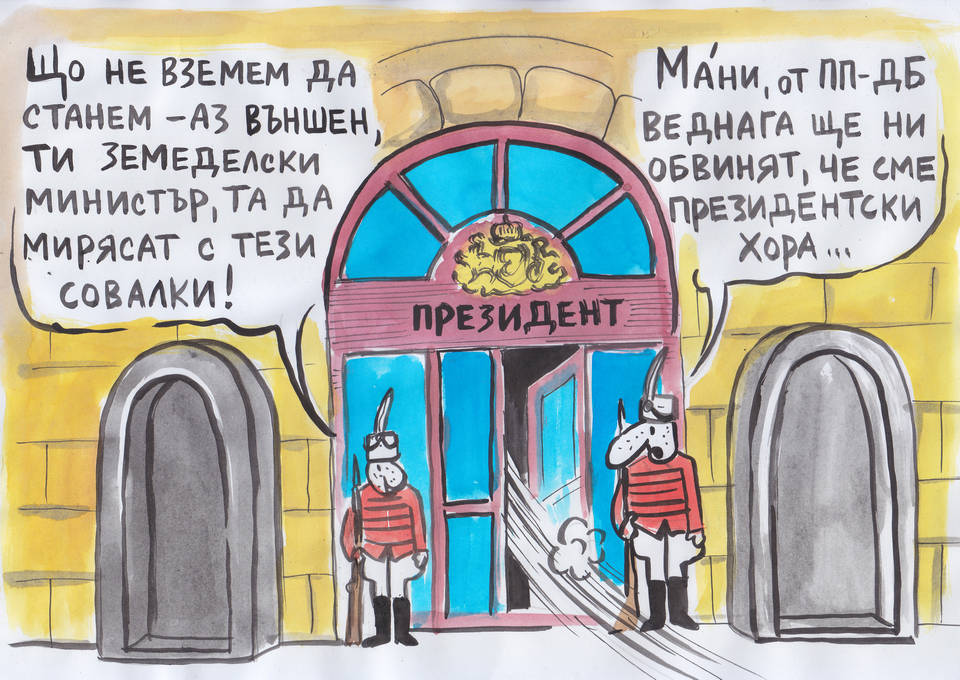 Що не вземем да
станем – аз външен,
ти земеделски
министър, та да
мирясат с тези
совалки!
Ма́ни, от ПП-ДБ
веднага ще ни
обвинят, че сме
президентски
хора...
ПРЕЗИДЕНТ